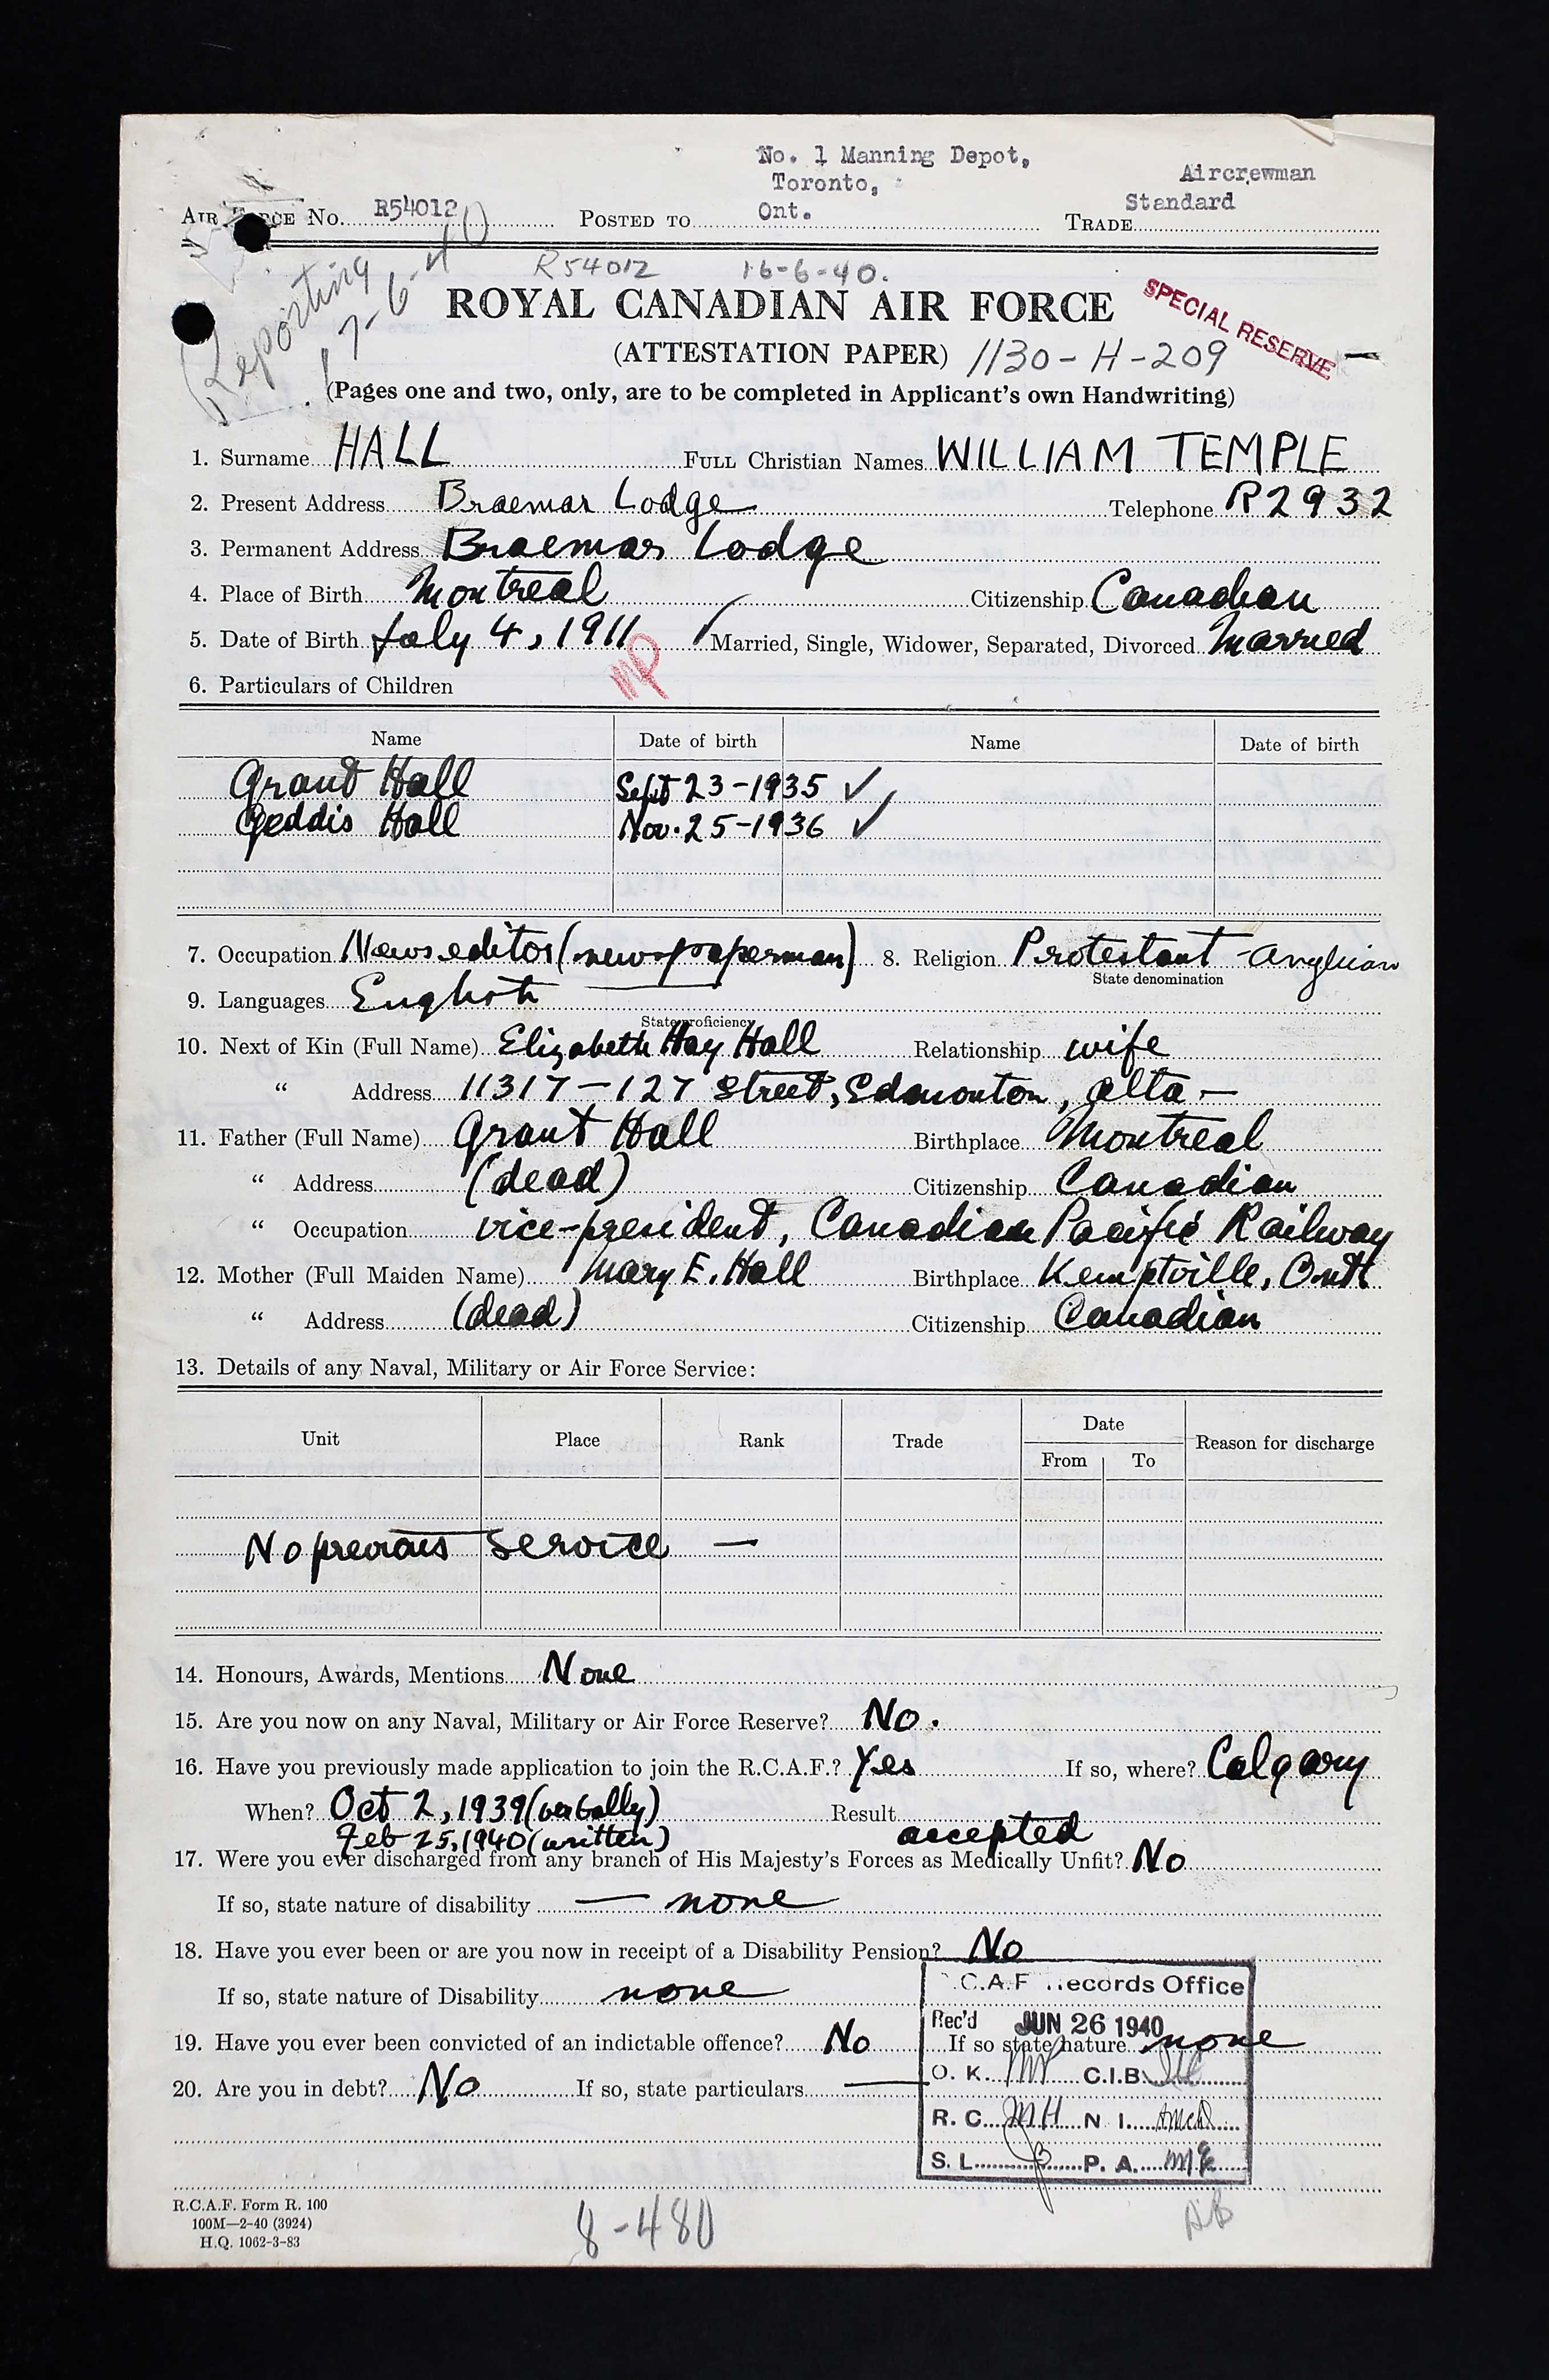 No. 1 Manning Depot,
Toronto,
Ont.
Aircrewman
Standard
AIR FORCE No. R54012 POSTED TO TRADE
Reporting
17-6-40
R54012 16-6-40.
ROYAL CANADIAN AIR FORCE
SPECIAL RESERVE
(ATTESTATION PAPER) 1130-H-209
(Pages one and two, only, are to be completed in Applicant's own Handwriting)
1. Surname HALL FULL Christian Names WILLIAM TEMPLE
2. Present Address Braemar Lodge Telephone R2932
3. Permanent Address Braemar Lodge
4. Place of Birth Montreal Citizenship Canadian
5. Date of Birth July 4, 1911 Married, Single, Widower, Separated, Divorced Married
6. Particulars of Children
Name Date of birth Name Date of birth
Grant Hall Sept 23-1935 ✓
Geddis Hall Nov. 25-1936 ✓
7. Occupation News editor (newspaperman) 8. Religion Protestant - Anglican
State denomination
9. Languages English
State proficiency
10. Next of Kin (Full Name) Elizabeth Hay Hall Relationship wife
" Address 11317-127 Street, Edmonton, Alta -
11. Father (Full Name) Grant Hall Birthplace Montreal
" Address (dead) Citizenship Canadian
" Occupation vice-president, Canadian Pacific Railway
12. Mother (Full Maiden Name) Mary E. Hall Birthplace Kemptville, Ont
" Address (dead) Citizenship Canadian
13. Details of any Naval, Military or Air Force Service:
Unit Place Rank Trade Date Reason for discharge
From To
No previous service —
14. Honours, Awards, Mentions None
15. Are you now on any Naval, Military or Air Force Reserve? No.
16. Have you previously made application to join the R.C.A.F.? Yes If so, where? Calgary
When? Oct 2, 1939 (verbally) Result accepted
Feb 25, 1940 (written)
17. Were you ever discharged from any branch of His Majesty's Forces as Medically Unfit? No
If so, state nature of disability — none
18. Have you ever been or are you now in receipt of a Disability Pension? No
If so, state nature of Disability none
19. Have you ever been convicted of an indictable offence? No If so state nature none
20. Are you in debt? No If so, state particulars —
C.A.F. Records Office
Rec'd JUN 26 1940
O. K. C.I.B.
R. C. MH N. I.
S. L. P. A.
R.C.A.F. Form R. 100
100M—2-40 (3924)
H.Q. 1062-3-83
8-480
AB